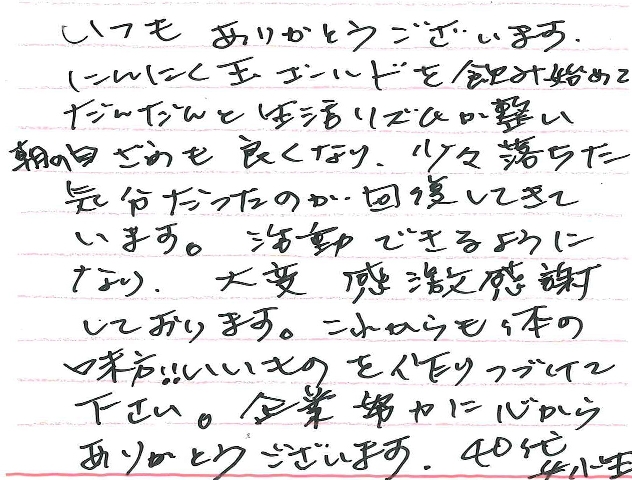 いつも ありがとうございます.
にんにく玉ゴールドを飲み始めて
だんだんと生活リズムが整い
朝の目ざめも 良くなり、少々落ちた
気分だったのが回復してきて
います。活動できるように
なり、大変 感激感謝
しております。これからも体の
味方!!いいものを作りつづけて
下さい。企業努力に心から
ありがとうございます. 40代